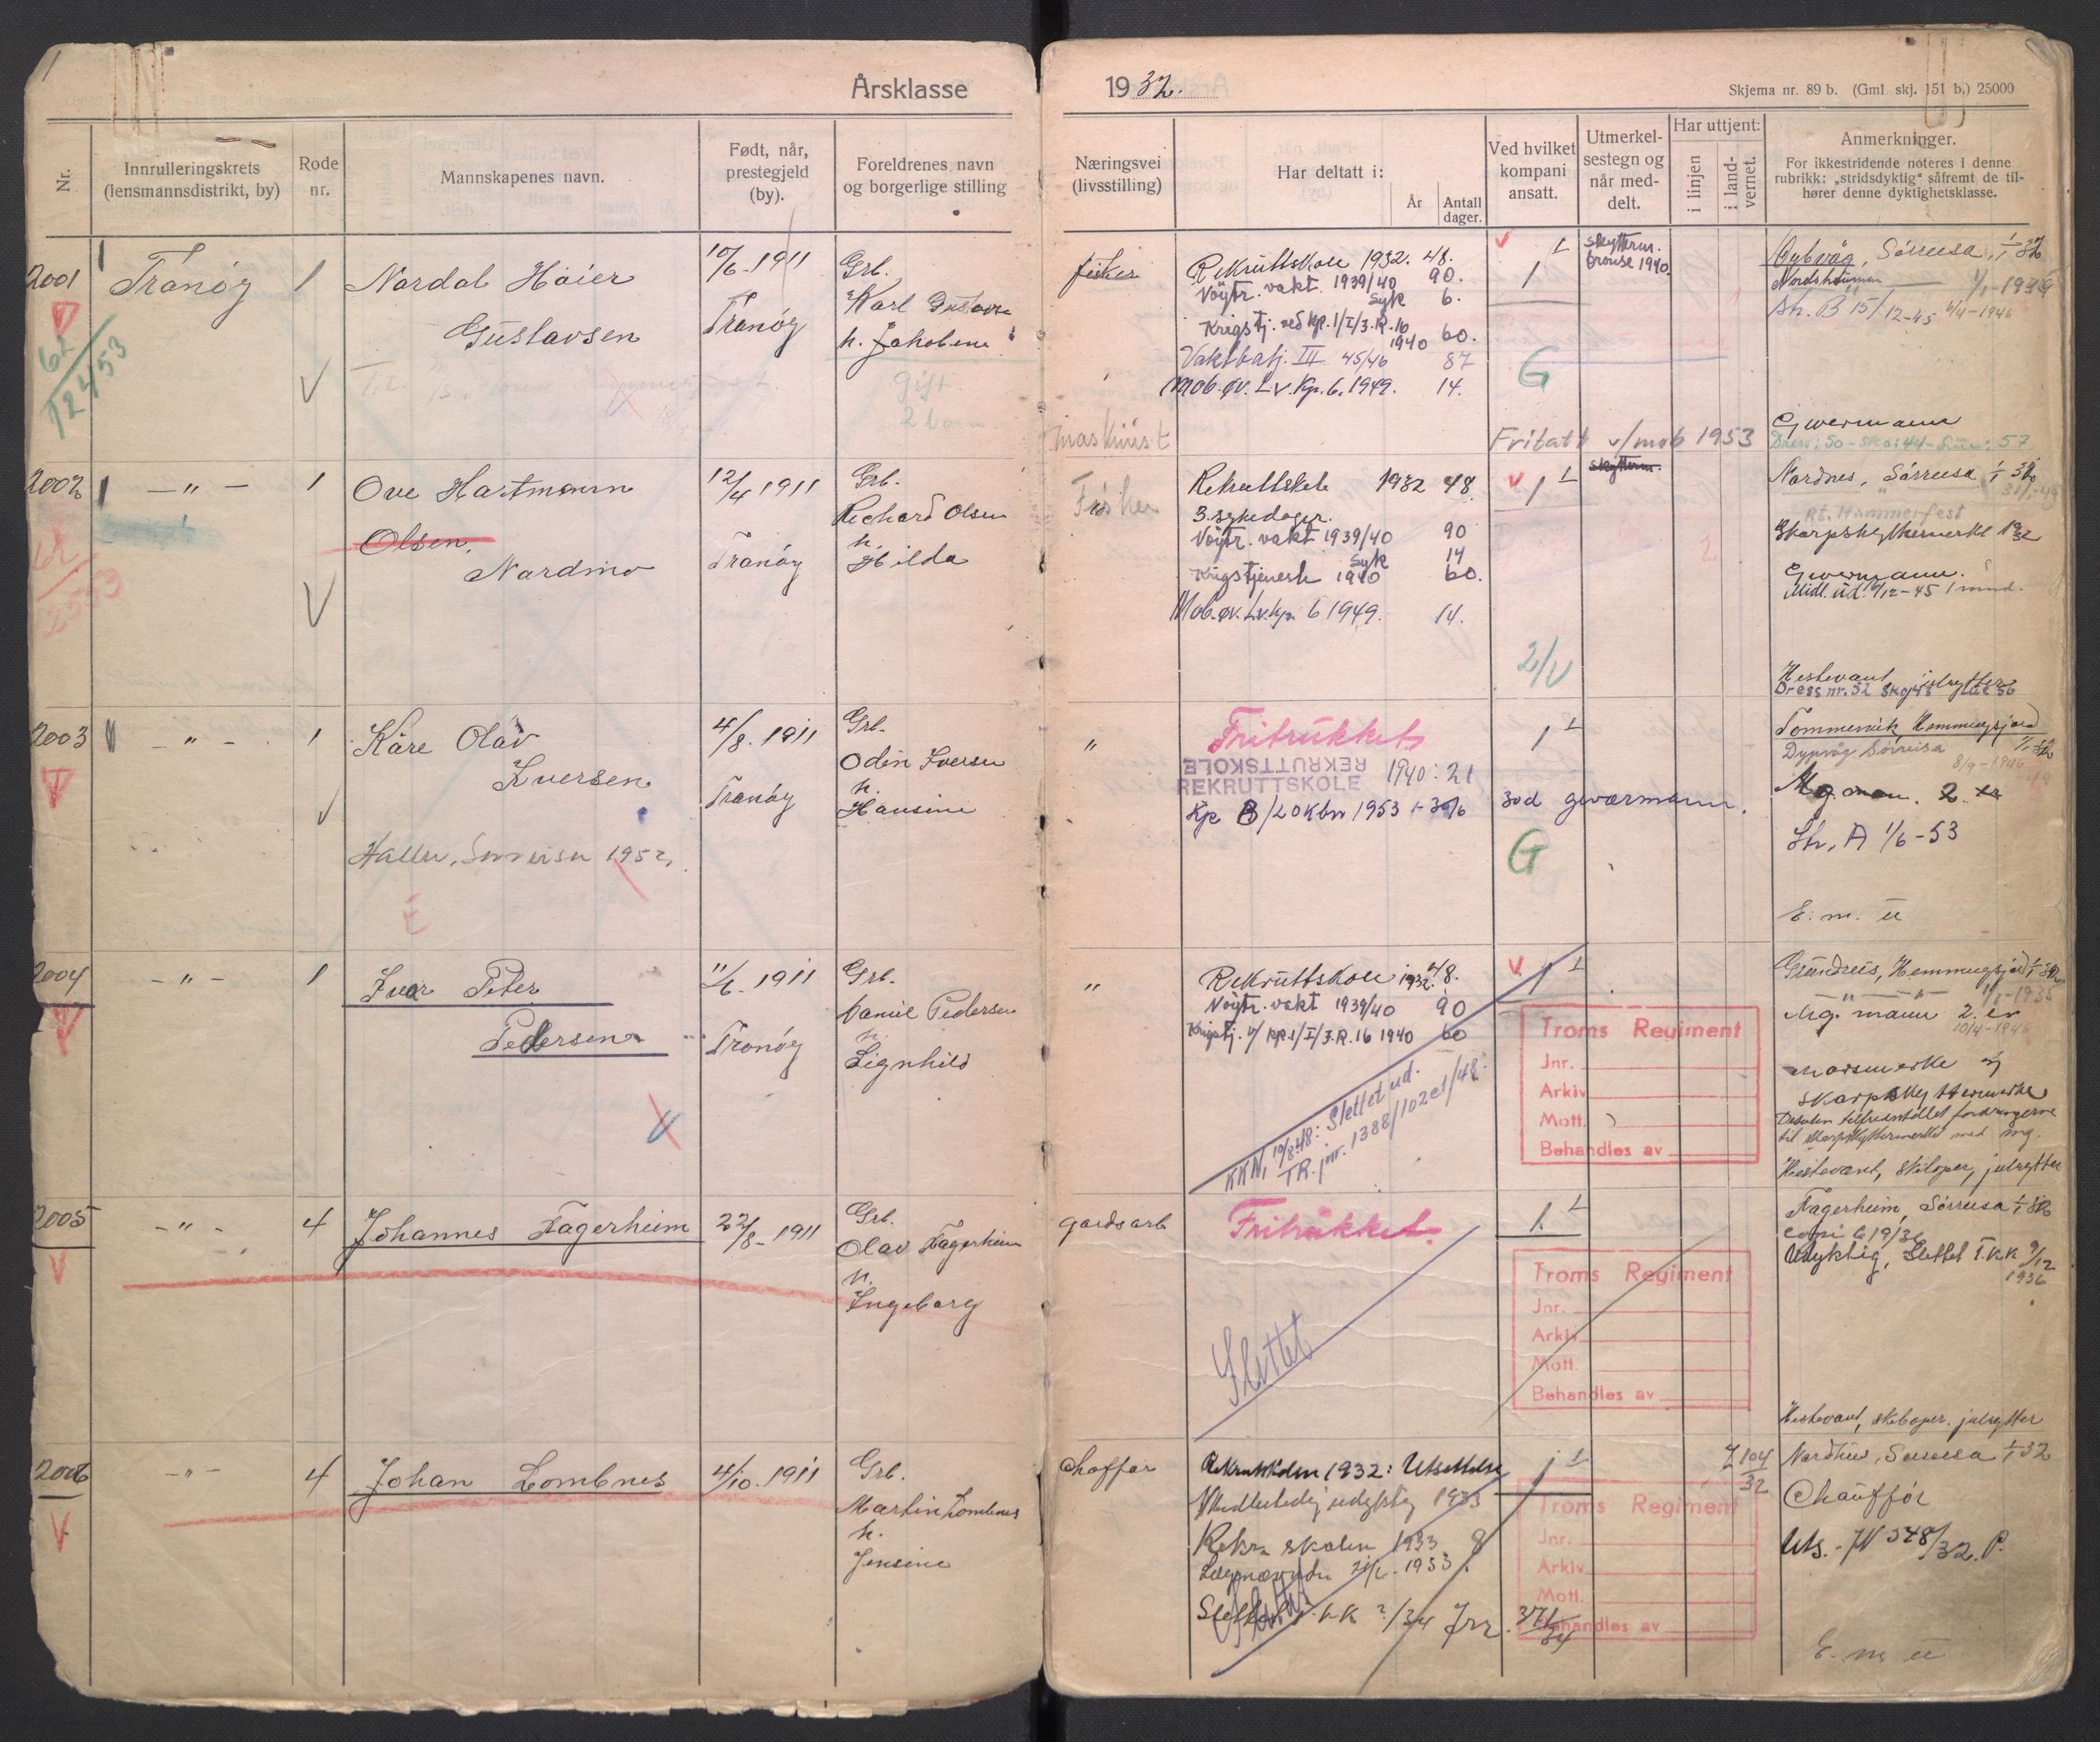 Årsklasse
1932.
Skjema nr. 89 b. (Gml skj. 151 b.) 25000
Nr.
Innrulleringskrets
(lensmannsdistrikt, by)
Rode
nr.
Mannskapenes navn.
Født, når,
prestegjeld
(by).
Foreldrenes navn
og borgerlige stilling
Næringsvei
(livsstilling)
Har deltatt i:
År
Antall
dager.
Ved hvilket
kompani
ansatt.
Utmerkel-
sestegn og
når med-
delt.
Har uttjent:
i linjen
i land-
vernet.
Anmerkninger.
For ikkestridende noteres i denne
rubrikk: „stridsdyktig“ såfremt de til-
hører denne dyktighetsklasse.
2001
62
Tranøy
1
Nordal Høier
Gustavsen
10/6-1911
Tranøy
Grb.
Karl Gustavs
h. Jakobine
gift
2 barn
fisker
maskinist
Rekruttskole 1932. 48.
Nøytr. vakt 1939/40 90.
Syk 6.
Krigstj. ved kp. 1/I/I.R. 16
1940 60.
Vaktbatj. III 45/46 87
Mob. øv. Lv. Kp. 6. 1949. 14.
V 1 L
G
Skytterm.
bronse 1940.
Fritatt v/mob 1953
Sørreisa, 1/1 32
Str. B 15/12-45 6/4-1946
Gevermann
2002
62
- " -
1
Ove Hartmann
Olsen.
Nordmo
12/4 1911
Tranøy
Grb.
Richard Olsen
h.
Hilda
Fisker
Rekruttskole 1932 48.
3. sykedager.
Nøytr. vakt 1939/40 90
Syk 14
Krigstjeneste 1940 60.
Mob. øv. Lv. kp. 6 1949. 14.
V 1 L
2/V
Skytterm.
2
Nordnes, Sørreisa 1/1 32
Rt. Hammerfest
Skarpskyttermerke 1932
Gevermann.
Midl. ud. 12-45 1 mnd.
Hestevant, julrytter
Dress nr. 52 Sko 43 Lue 56
2003
- " -
1
Kåre Olav
Iversen
Sørreisa 1952,
4/8. 1911
Tranøy
Grb.
Odin Iversen
h.
Hansine
"
Fritrukket
REKRUTTSKOLE
REKRUTTSKOLE 1940: 21
Kp B/20 Kbn 1953
1 L
3od geværmann.
G
Tommervik, Hemmingsjord
Dypvåg Sørreisa 1/1 32
8/4-1946
Mg. man. 2. er
Str. A 1/6-53
E. m. u
2004
- " -
1
Ivar Peter
Pedersen
11/6. 1911
Tranøy
Grb.
Daniel Pedersen
h.
Signhild
"
Rekruttskole 1932. 48.
Nøytr. vakt 1939/40 90
Krigstj. v/ kp. 1/I/I.R. 16 1940 60
KKN, 10/8.48: Slettet ud.
TR. jnr. 1388/102e1/48.
V. 1 L
Troms Regiment
Jnr.
Arkiv
Mott.
Behandles av
Hemmingsjord 1/1 32
1/1-1935
Mg. mann 2. er
10/4-1946
marsmerke og
skarpskyttermerke
til skarpskyttermerke med mg.
Hestevant, skiløper, julrytter
2005
- " -
4
Johannes Fagerheim
22/8-1911
Grb.
Olav Fagerheim
h.
Ingeborg
gardsarb
Fritrukket.
Slettet
1. L
Troms Regiment
Jnr.
Arkiv
Mott.
Behandles av
Fagerheim, Sørreisa 1/1 32
Udyktig, Slettet I. K K 9/12
1936
Hestevant, skiløper, julrytter
2006
- " -
4
Johan Lombnes
4/10. 1911
Grb.
Martin Lombnes
h.
Jensine
Chaffør
Rekruttskolen 1932: Utsettelse
Midlertidig udyktig 1933
Rekr. skolen 1933 8
21/6-1933
Slettet K.K. 2/34 Jnr. 371/34
Slettet
1 L
Troms Regiment
Jnr.
Arkiv
Mott.
Behandles av
J 104/32
Sørreisa 1/1 32
Chauffør
Uts. - JN 548/32. P.
E. m. u